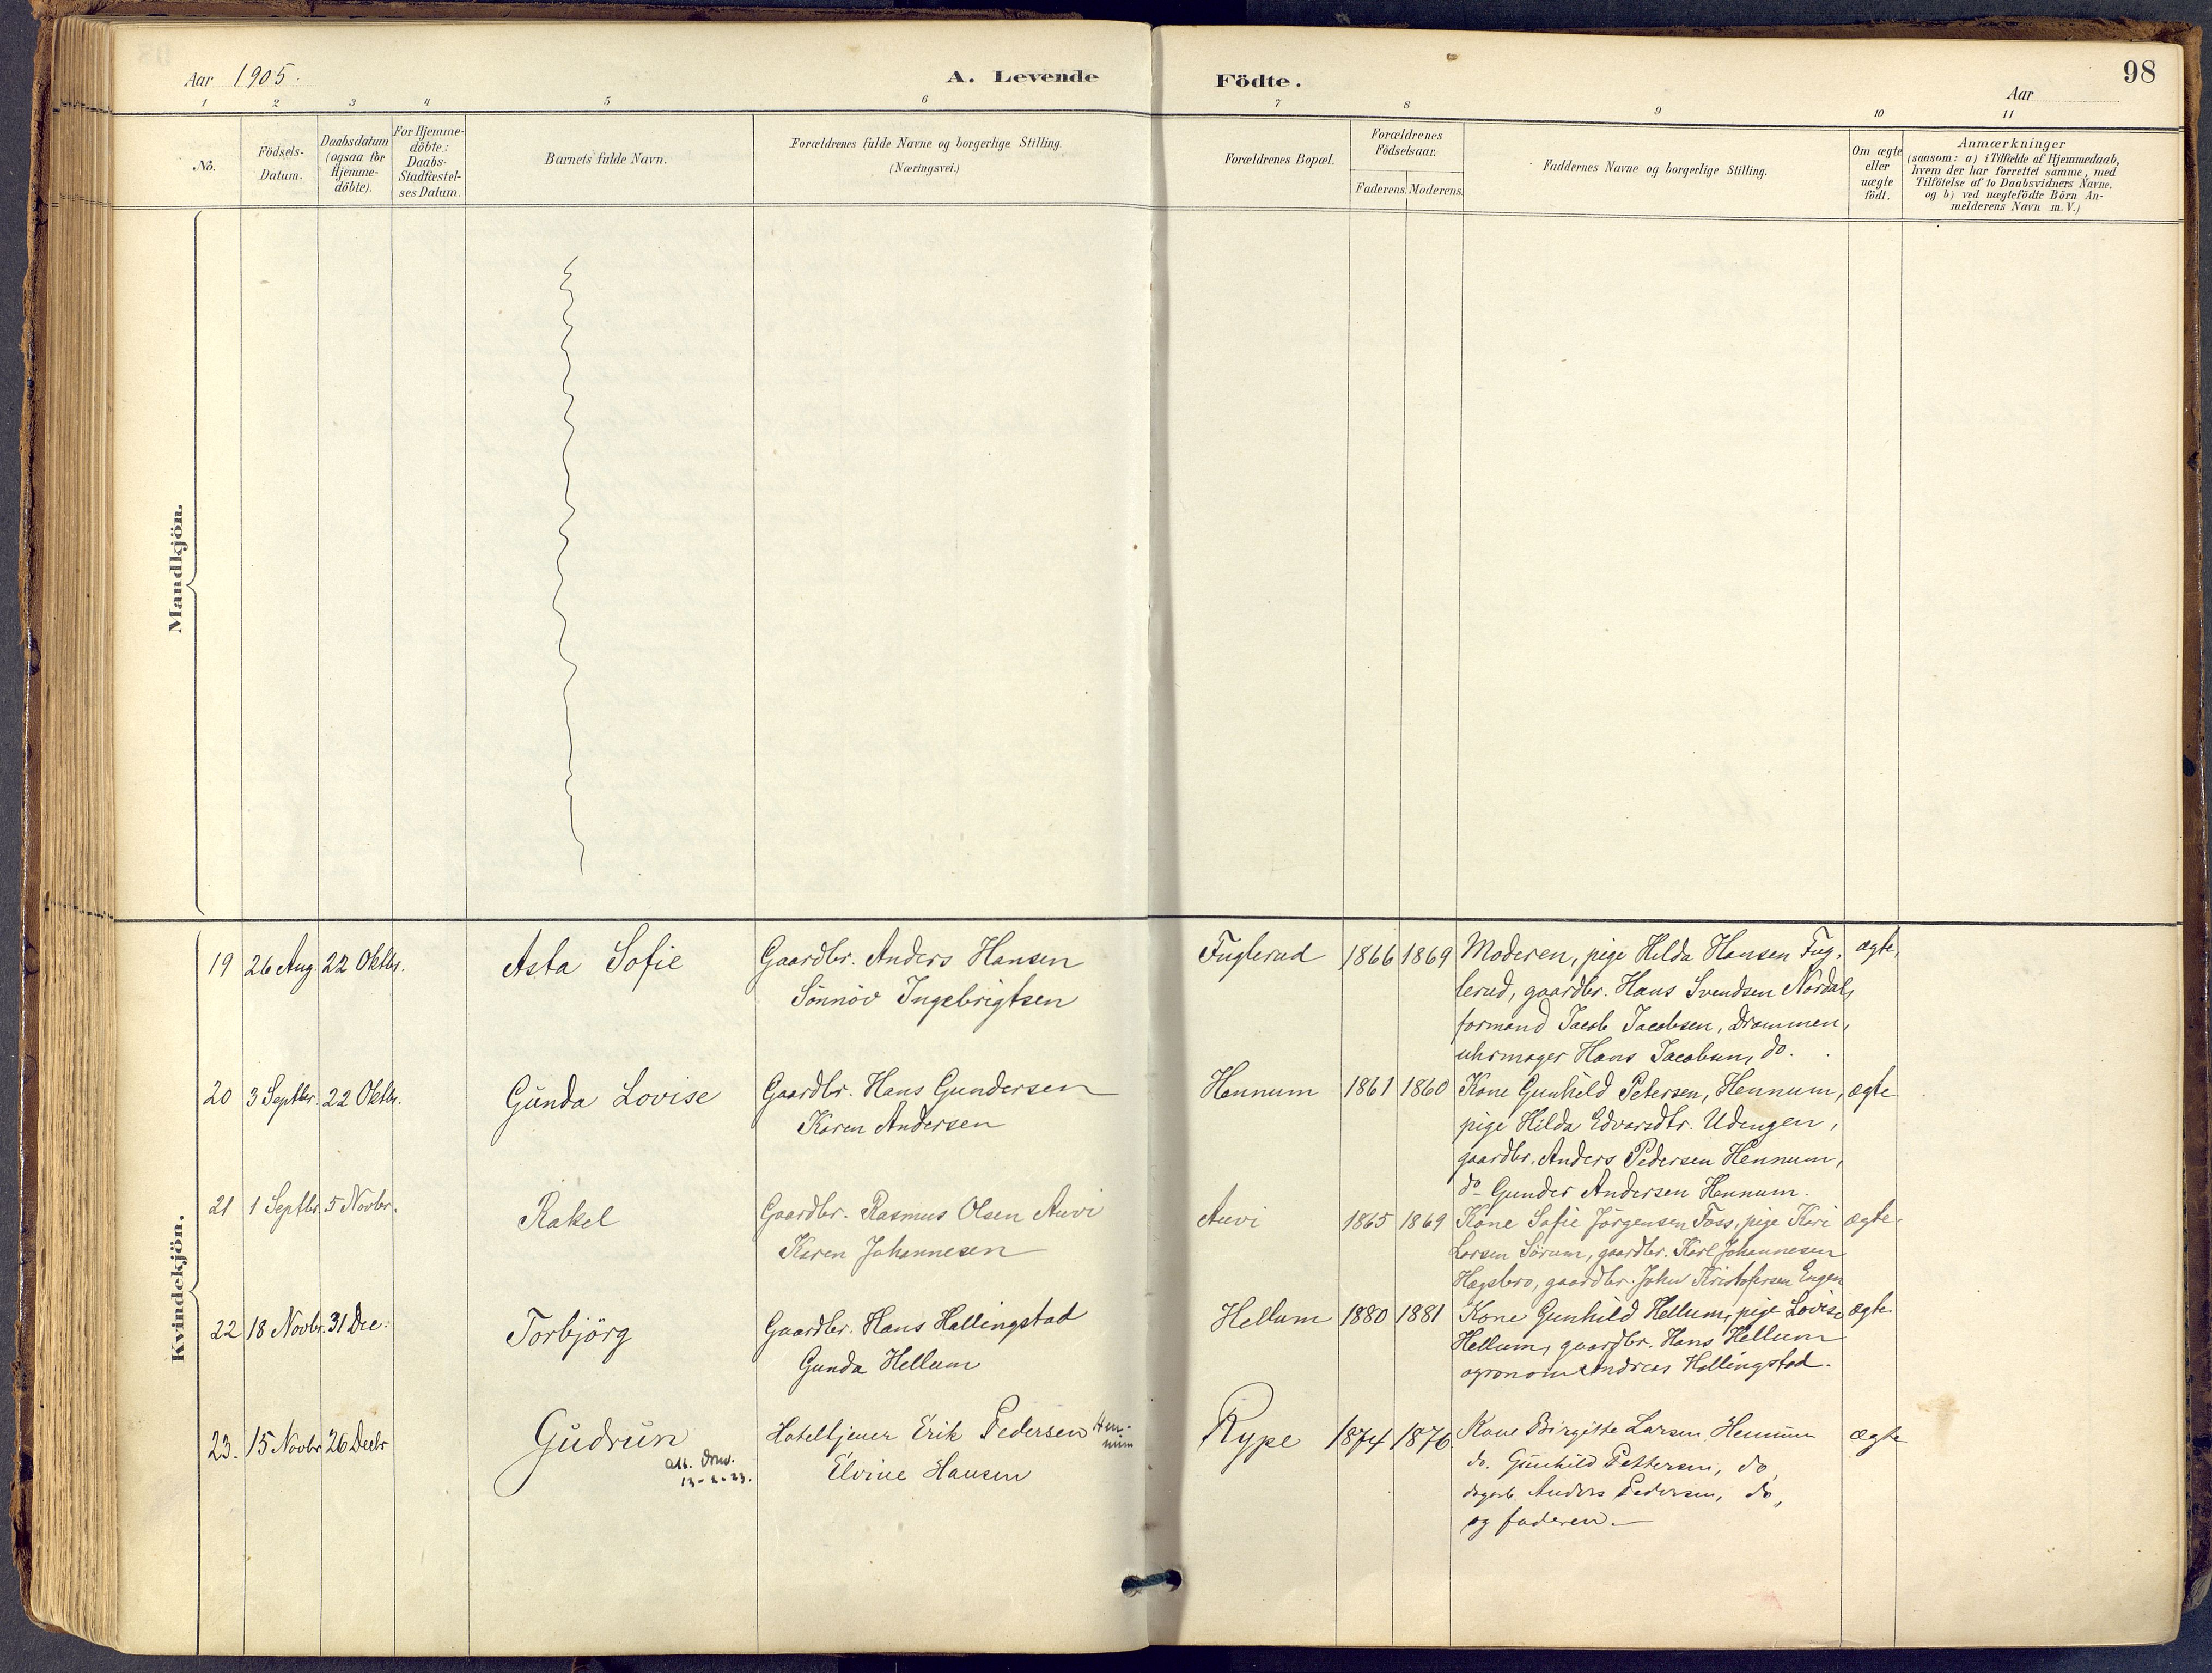 Aar 1905.
A. Levende Födte.
98
Aar
1 2 3 4 5 6 7 8 9 10 11
No.
Födsels-Datum.
Daabsdatum (ogsaa for Hjemme-döbte).
For Hjemme-döbte: Daabs-Stadfæstel-ses Datum.
Barnets fulde Navn.
Forældrenes fulde Navne og borgerlige Stilling. (Næringsvei.)
Forældrenes Bopæl.
Forældrenes Födselsaar.
Faderens. Moderens.
Faddernes Navne og borgerlige Stilling.
Om ægte eller uægte födt.
Anmærkninger
(saasom: a) i Tilfælde af Hjemmedaab,
hvem der har forrettet samme, med
Tilföielse af to Daabsvidners Navne.
og b) ved uægtefödte Börn An-
melderens Navn m. V.)
Mandkjön.
Kvindekjön.
19 26 Aug. 22 Oktbr. Asta Sofie Gaardbr. Anders Hansen Fuglerud 1866 1869 Moderen, pige Hilda Hansen Fug- ægte.
Sönnöv Ingebrigtsen lerud, gaardbr. Hans Svendsen Nordal,
formand Jacob Jacobsen, Drammen,
uhrmager Hans Jacobsen, do.
20 3 Septbr. 22 Oktbr. Gunda Lovise Gaardbr. Hans Gundersen Hennum 1861 1860 Kone Gunhild Petersen, Hennum, ægte
Karen Andersen pige Hilda Edvardsdtr. Udengen,
gaardbr. Anders Pedersen Hennum,
do Gunder Andersen Hennum.
21 1 Septbr. 5 Novbr. Rakel Gaardbr. Rasmus Olsen Auvi Auvi 1865 1869 Kone Sofie Jörgensen Foss, pige Kari ægte.
Karen Johannesen Larsen Sörum, gaardbr. Karl Johannesen
Hagsbro, gaardbr. John Kristofersen Engen
22 18 Novbr. 31 Dec. Torbjörg Gaardbr. Hans Hallingstad Hellum 1880 1881 Kone Gunhild Hellum, pige Lovise ægte
Gunda Hellum Hellum, gaardbr. Hans Hellum
agronom Andreas Hallingstad.
23. 15 Novbr 26 Decbr Gudrun Hoteltjener Erik Pedersen Hen-num Rype 1874 1876 Kone Birgitte Larsen Hennum ægte
att. Drm. 13-2-23. Elvine Hansen do. Gunhild Pettersen, do,
dagarb. Anders Pedersen, do,
og faderen.